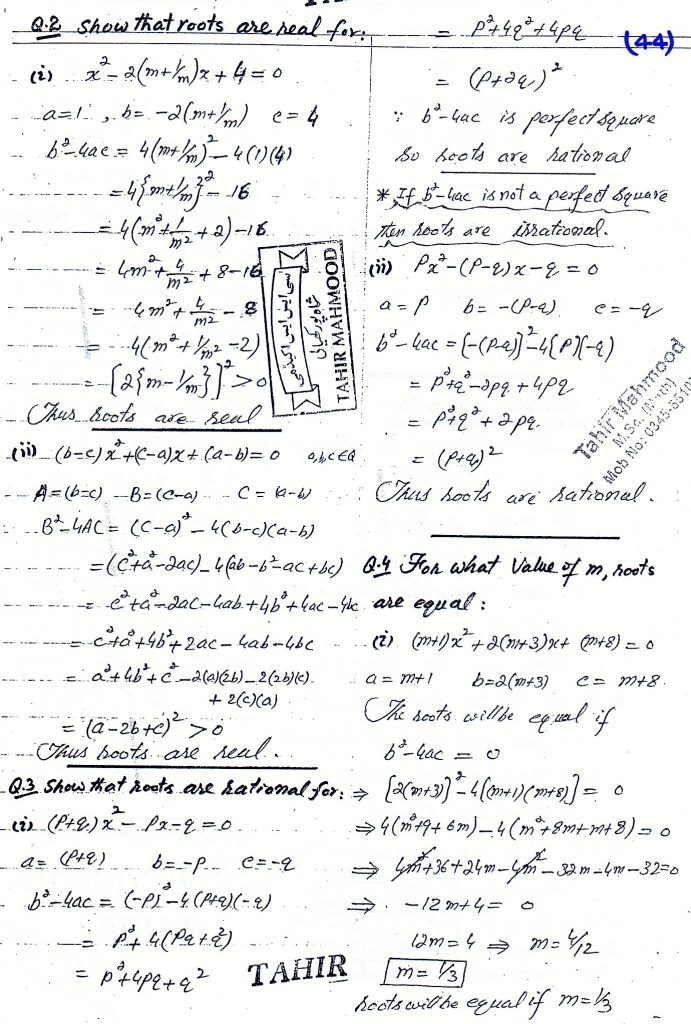 Q.2 Show that roots are real for:
(i) x² - 2(m+1/m)x + 4 = 0
a=1 , b= -2(m+1/m) c = 4
b²-4ac = 4(m+1/m)² - 4(1)(4)
= 4{m+1/m}² - 16
= 4(m²+1/m²+2)-16
= 4m²+4/m²+8-16
= 4m²+4/m²-8
= 4(m²+1/m²-2)
= [2{m-1/m}]²>0
Thus roots are real
(ii) (b-c)x²+(c-a)x+(a-b)=0 a,b,c∈Q
A=(b-c) B=(c-a) C=(a-b)
B²-4AC = (c-a)²-4(b-c)(a-b)
=(c²+a²-2ac)-4(ab-b²-ac+bc)
= c²+a²-2ac-4ab+4b²+4ac-4bc
= c²+a²+4b²+2ac-4ab-4bc
= a²+4b²+c²-2(a)(2b)-2(2b)(c)
+2(c)(a)
= (a-2b+c)²>0
Thus roots are real.
Q.3 Show that roots are rational for:
(i) (P+q)x²-Px-q=0
a=(P+q) b=-p c=-q
b²-4ac = (-P)²-4(P+q)(-q)
= P²+4(Pq+q²)
= p²+4pq+q²
TAHIR
سی ایس ایس اکیڈمی
TAHIR MAHMOOD
(44)
= P²+4q²+4pq
= (P+2q)²
∵ b²-4ac is perfect square
So roots are rational
* If b²-4ac is not a perfect square
then roots are irrational.
(ii) Px²-(P-q)x-q=0
a=P b=-(P-q) c=-q
b²-4ac=[-(P-q)]²-4(P)(-q)
= P²+q²-2pq+4pq
= P²+q²+2pq
= (P+q)²
Thus roots are rational.
Tahir Mahmood
M.Sc. (Math)
Mob No: 0345-
Q.4 For what value of m, roots
are equal:
(i) (m+1)x²+2(m+3)x+(m+8)=0
a=m+1 b=2(m+3) c=m+8
The roots will be equal if
b²-4ac = 0
⇒ [2(m+3)]²-4[(m+1)(m+8)]=0
⇒ 4(m²+9+6m)-4(m²+8m+m+8)=0
⇒ 4m²+36+24m-4m²-32m-4m-32=0
⇒ -12m+4=0
12m=4 ⇒ m=4/12
m=1/3
roots will be equal if m=1/3